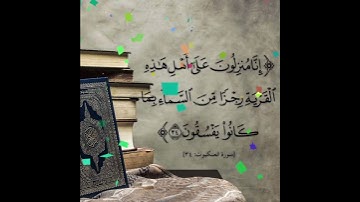 ﴿ إِنَّا مُنزِلُونَ عَلَىٰٓ أَهْلِ هَٰذِهِ
ٱلْقَرْيَةِ رِجْزًا مِّنَ ٱلسَّمَآءِ بِمَا
كَانُوا۟ يَفْسُقُونَ ٣٤ ﴾
[سورة العنكبوت: ٣٤]